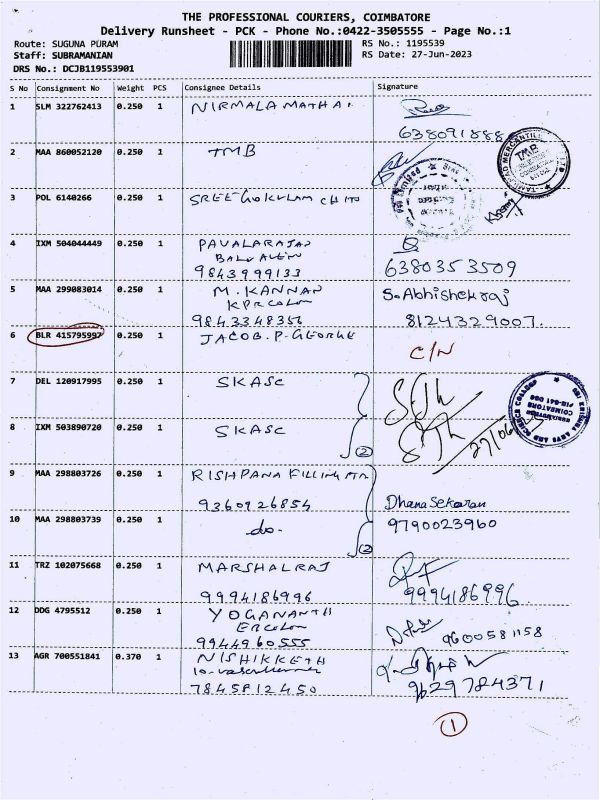 THE PROFESSIONAL COURIERS, COIMBATORE
Delivery Runsheet - PCK - Phone No.:0422-3505555 - Page No.:1
Route: SUGUNA PURAM RS No.: 1195539
Staff: SUBRAMANIAN RS Date: 27-Jun-2023
DRS No.: DCJB119553901
S No Consignment No Weight PCS Consignee Details Signature
1 SLM 322762413 0.250 1 NIRMALA MATHAI
638091888
2 MAA 860052120 0.250 1 TMB
TMB
3 POL 6140266 0.250 1 SREE GOKULAM CHITS
4 IXM 504044449 0.250 1 PAVALARAJAN
9843999133 6380353509
5 MAA 299083014 0.250 1 M. KANNAN S. Abhishek raj
KPR COLON
9843348356 8124329007.
6 BLR 415795997 0.250 1 JACOB. P. GEORGE C/N
7 DEL 120917995 0.250 1 SKASC
8 IXM 503890720 0.250 1 SKASC (2) 27/06
9 MAA 298803726 0.250 1 RISHPANA FILLING
9360926854 Dhana Sekaran
10 MAA 298803739 0.250 1 do- (2) 9790023960
11 TRZ 102075668 0.250 1 MARSHAL RAJ
9994186996 9994186996
12 DDG 4795512 0.250 1 YOGANANTH
ER COLON 9600581158
9944960555
13 AGR 700551841 0.370 1 NISHIKKETH
7845812450 9629784371
(1)